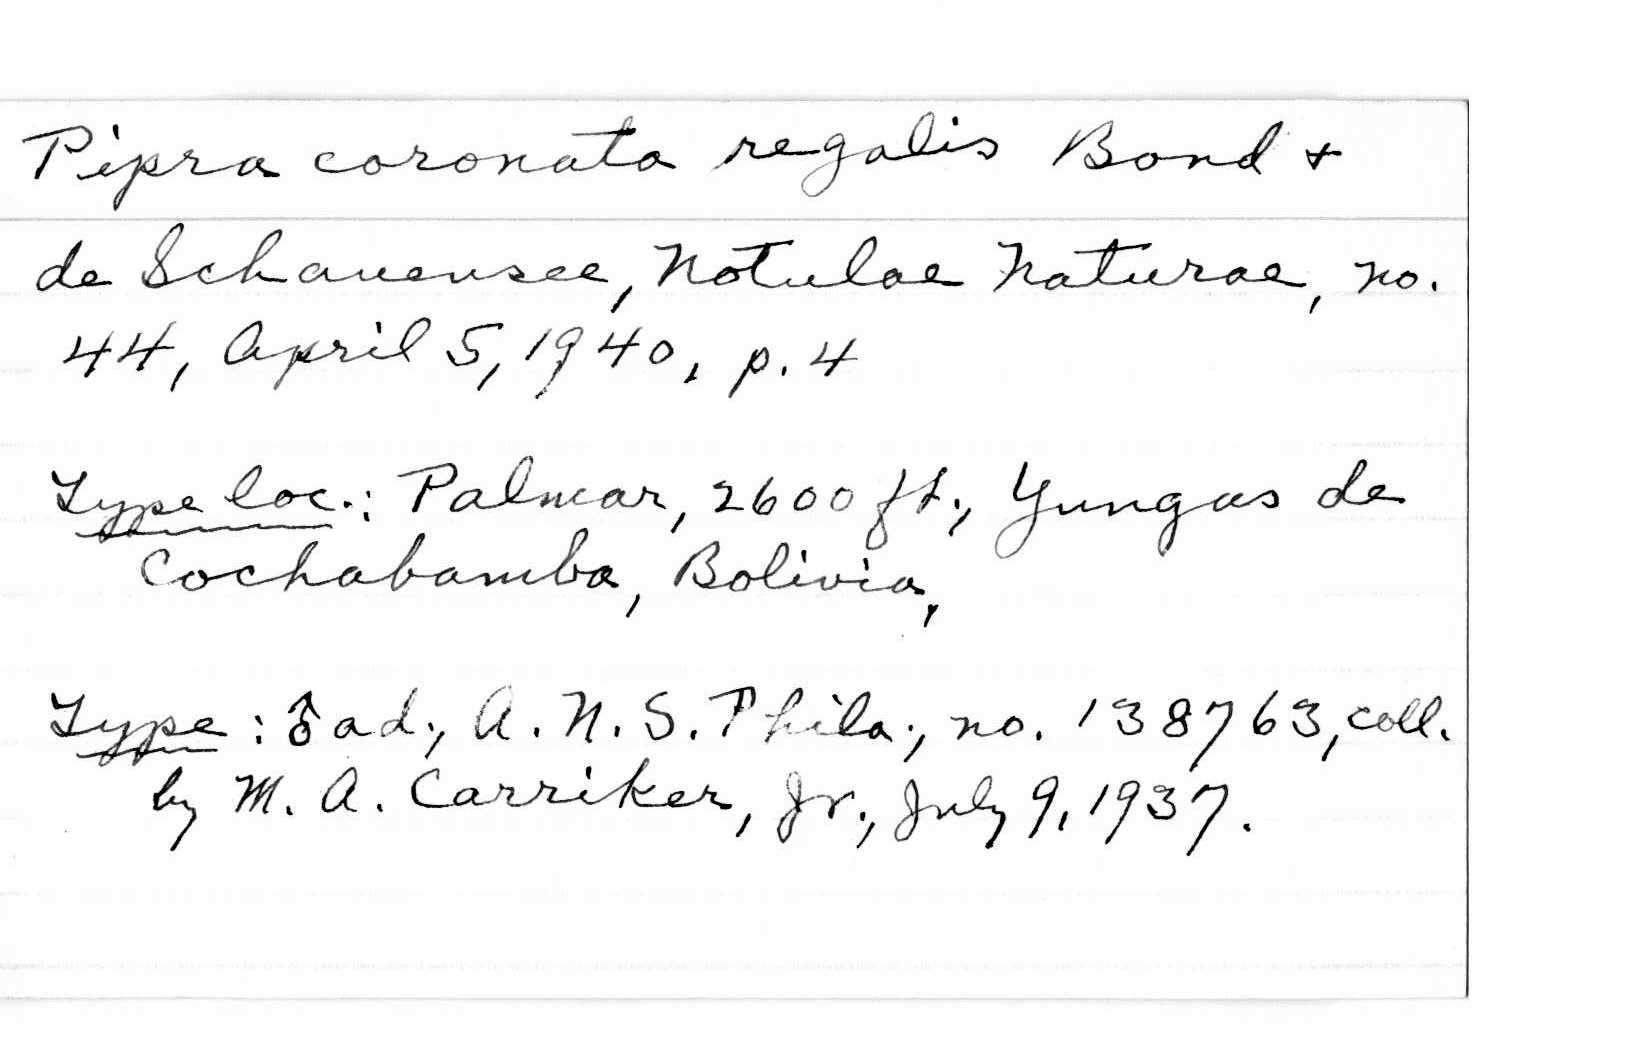 Pipra coronata regalis Bond +
de Schauensee, Notulae Naturae, no.
44, April 5, 1940, p. 4
Type loc.: Palmar, 2600 ft., Yungas de
Cochabamba, Bolivia,
Type: ♂ ad., A. N. S. Phila., no. 138763, coll.
by M. A. Carriker, Jr., July 9, 1937.